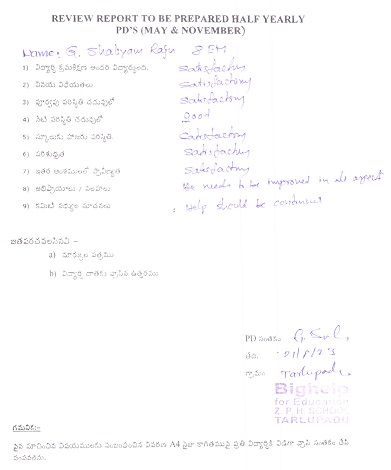 REVIEW REPORT TO BE PREPARED HALF YEARLY
PD'S (MAY & NOVEMBER)
Name: G. Shabyam Raju 8 EM
1) విద్యార్థి క్రమశిక్షణ ఇందరి విద్యార్థులది. Satisfactory
2) వినయ విధేయతలు Satisfactory
3) పూర్వపు పరిస్థితి చదువులో Satisfactory
4) నేటి పరిస్థితి చదువులో good
5) స్కూలుకు హాజరు పరిస్థితి. Satisfactory
6) పరిశుభ్రత Satisfactory
7) ఇతర అంశములలో ప్రావీణ్యత Satisfactory
8) అభిప్రాయాలు / సలహాలు He needs to be improved in all aspect
9) కమిటీ సభ్యుల సూచనలు : Help should be continued
జతపరచవలసినవి –
a) మార్కుల పత్రము
b) విద్యార్థి దాతకు వ్రాసిన ఉత్తరము
PD సంతకము
తేది.
గ్రామం Tarlupadu
Bighelp
for Education
Z. P. H. SCHOOL
TARLUPADU
గమనిక:-
పైన సూచించిన విషయములకు సంబంధించిన వివరణ A4 సైజు కాగితముపై ప్రతి విద్యార్థికి విడిగా వ్రాసి సంతకం చేసి
పంపవలెను.